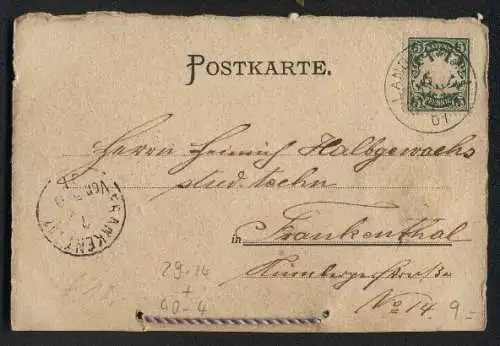 POSTKARTE.
BAYERN
5 5
PFENNIG
LAND
01
Herrn Heinrich Halbgewachs
stud. techn
in Frankenthal
Nürnbergerstraße
No 14.
9.-
FRANKENTHAL
29.14
+
40-4